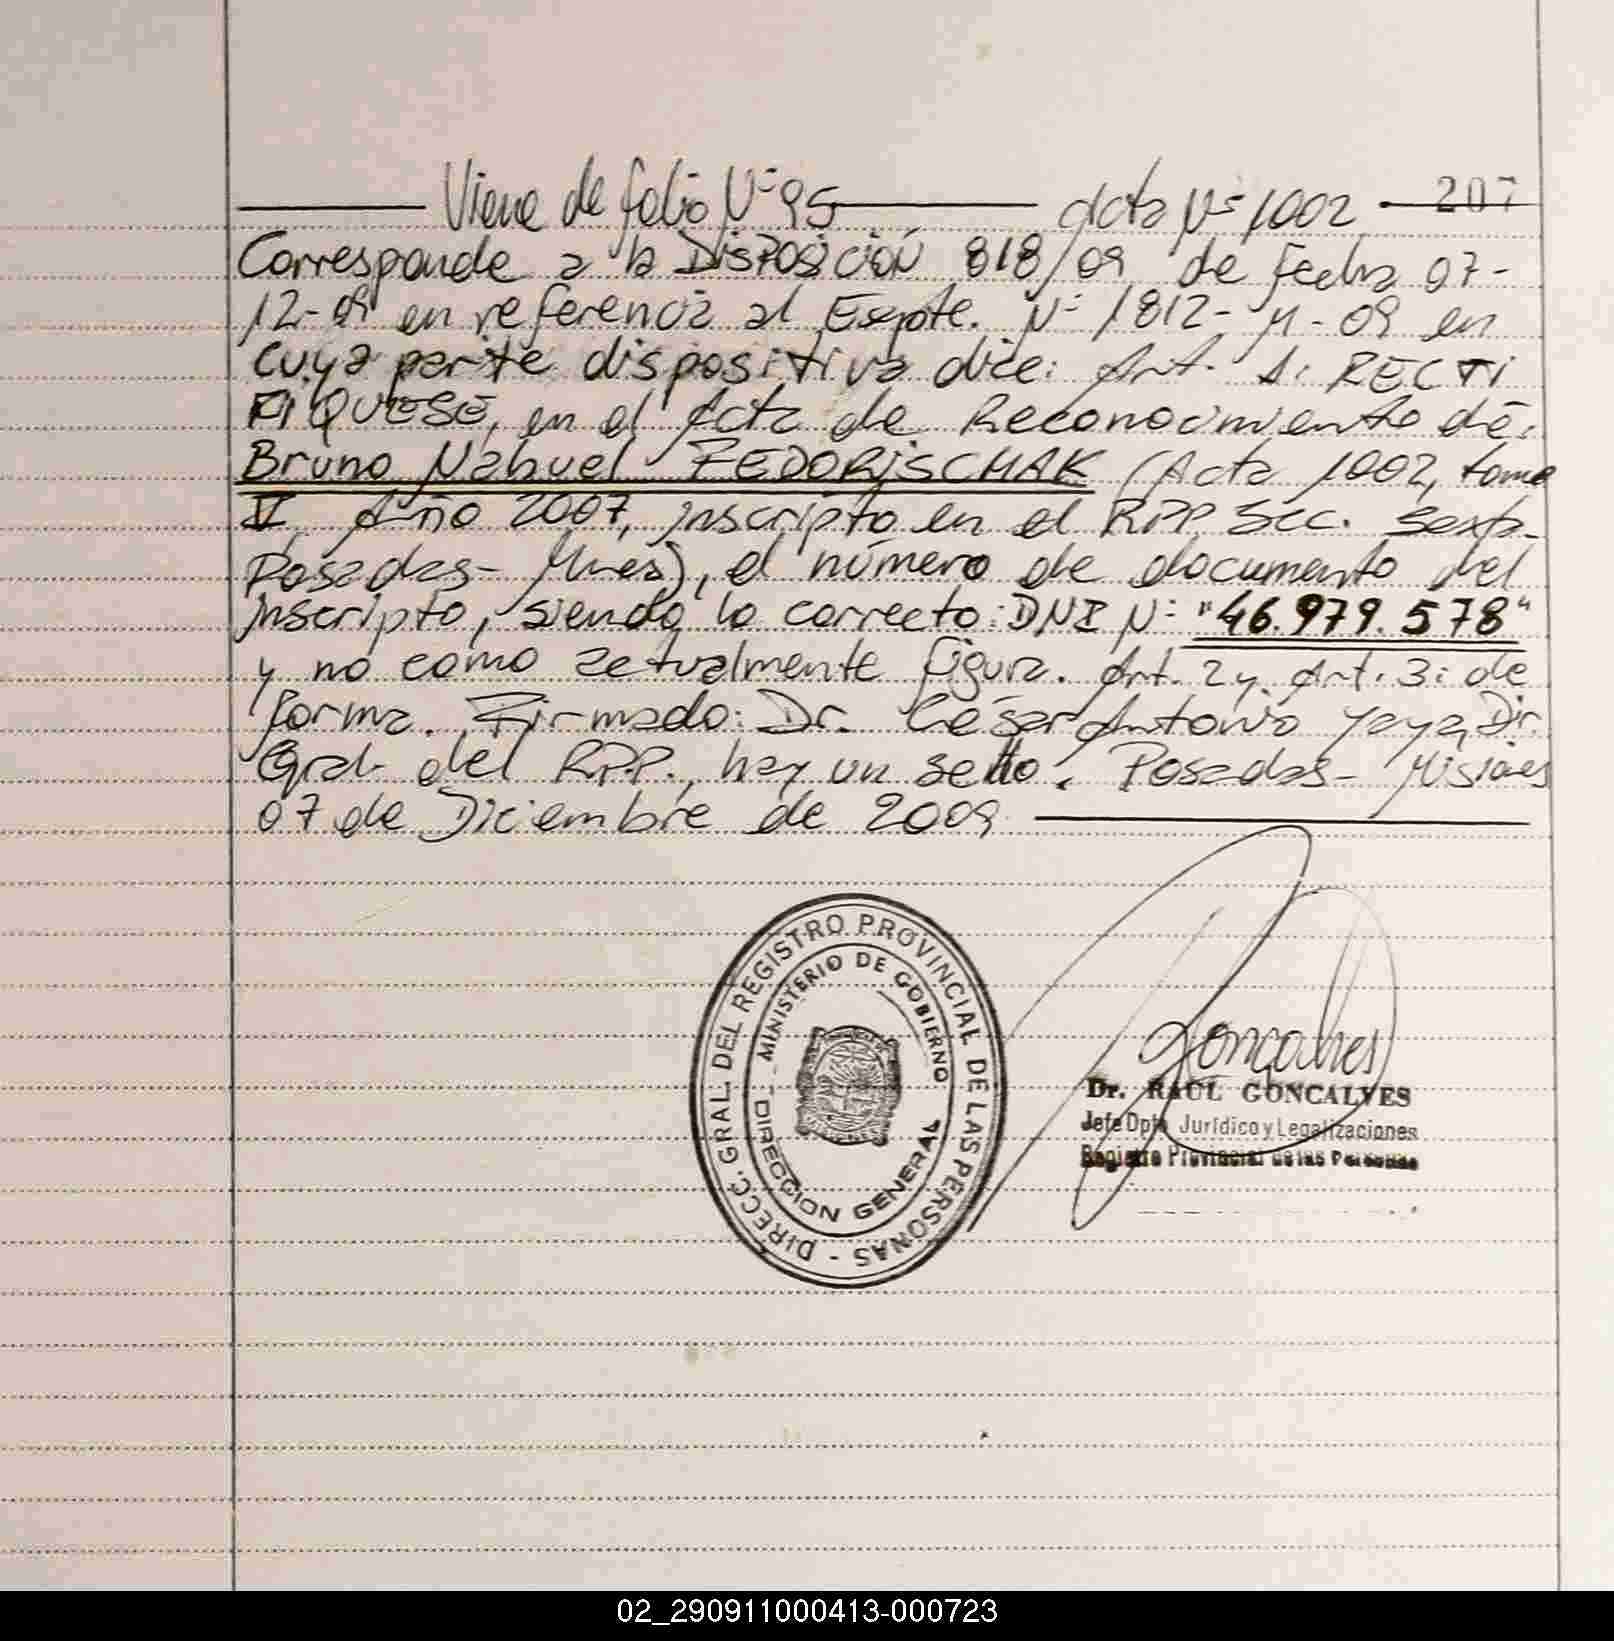 Viene de folio Nº 95 Acta Nº 1002 207
Corresponde a la DISPOSICIÓN 818/09 de fecha 07-
12-09 en referencia al Expte. Nº 1812- M-09 en
cuya parte dispositiva dice: Art. 1: RECTI
FIQUESE, en el Acta de Reconocimiento de:
Bruno Nahuel FEDORISCHAK (Acta 1002, tomo
V, Año 2007, inscripto en el RPP Sec. Sexta-
Posadas- Mnes), el número de documento del
inscripto, siendo lo correcto: DNI Nº "46.979.578"
y no como actualmente figura. Art. 2 y Art. 3: de
forma. Firmado: Dr. César Antonio Yaya, Dir.
Gral. del RPP., hay un sello. Posadas- Misiones
07 de Diciembre de 2009
DIRECC. GRAL. DEL REGISTRO PROVINCIAL DE LAS PERSONAS -
MINISTERIO DE GOBIERNO
- DIRECCION GENERAL
Goncalves
Dr. RAUL GONCALVES
Jefe Dpto Jurídico y Legalizaciones
Registro Provincial de las Personas
02_290911000413-000723